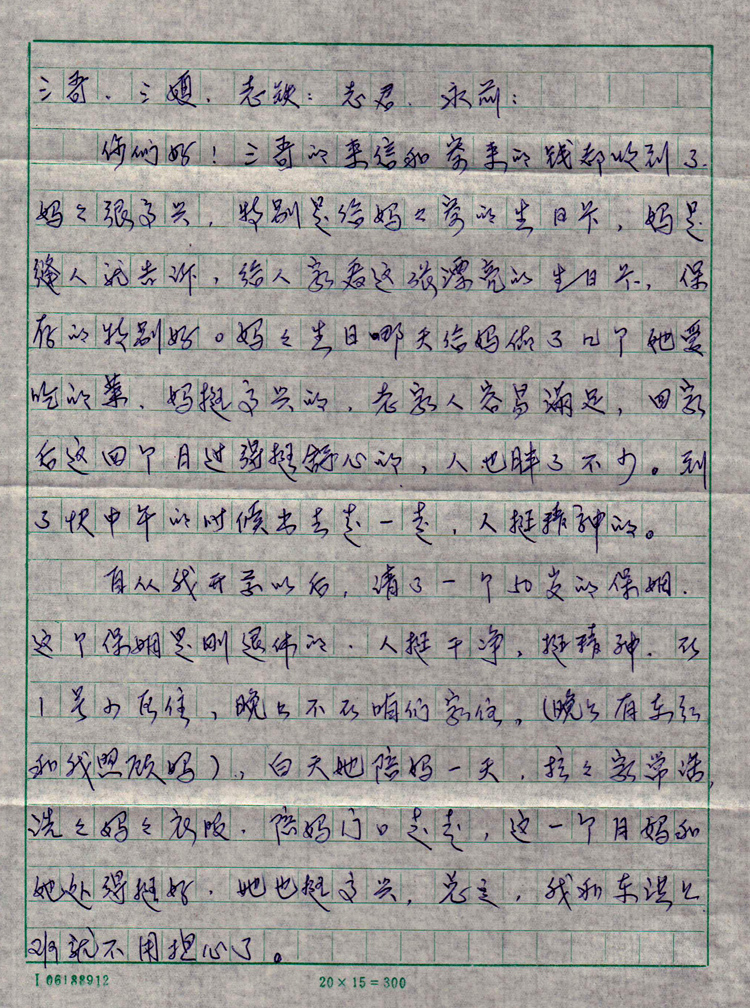 三哥、三嫂、志铁：志君、永前：
你们好！三哥的来信和寄来的钱都收到了.
妈々很高兴，特别是给妈々寄的生日卡，妈是
缝人就告诉，给人家看这张漂亮的生日卡，保
存的特别好。妈々生日哪天给妈做了几个她爱
吃的菜、妈挺高兴的，老家人容易满足，回家
后这四个月过得挺舒心的，人也胖了不少。到
了快中午的时候出去走一走，人挺精神的。
自从我开学以后，请了一个50岁的保姆.
这个保姆是刚退休的．人挺干净，挺精神．在
1号少区住，晚上不在咱们家住，（晚上有东
和我照顾妈），白天她陪妈一天．拉々家常话,
洗々妈々衣服．陪妈门口走走，这一个月妈和
她处得挺好．她也挺高兴，总之，我和东洪上
班就不用担心了。
I 06188912
20×15=300